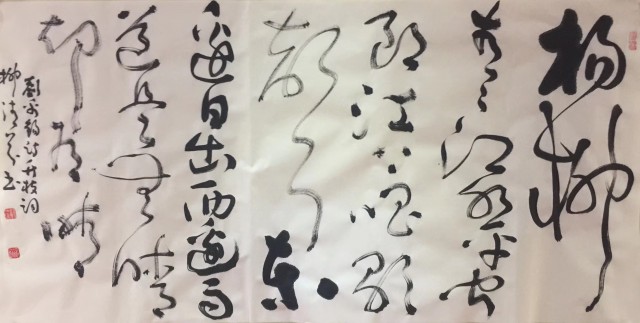 楊柳
青々江水平闻
郎江上唱歌
聲东
邊日出西邊雨
道是無晴
却有晴
劉禹錫詩竹枝詞
柳清书